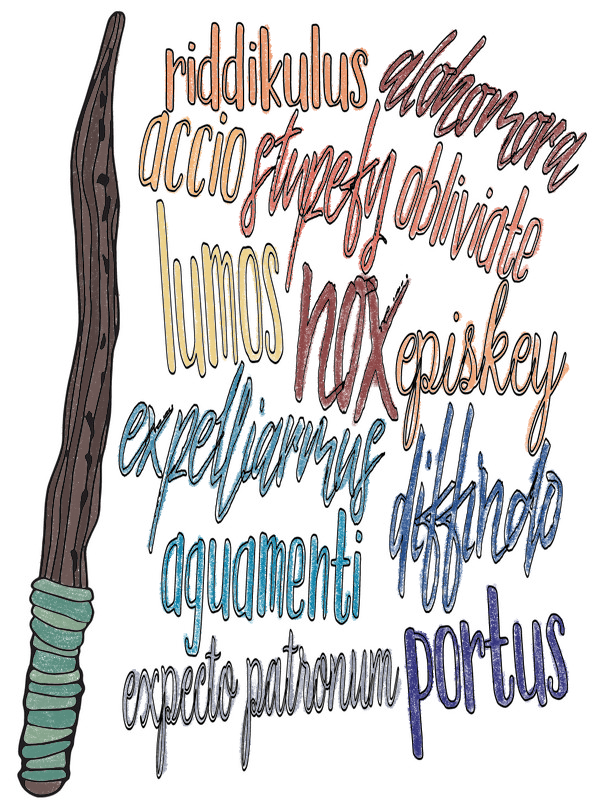 riddikulus alohomora
accio stupefy obliviate
lumos nox episkey
expelliarmus diffindo
aguamenti
expecto patronum portus